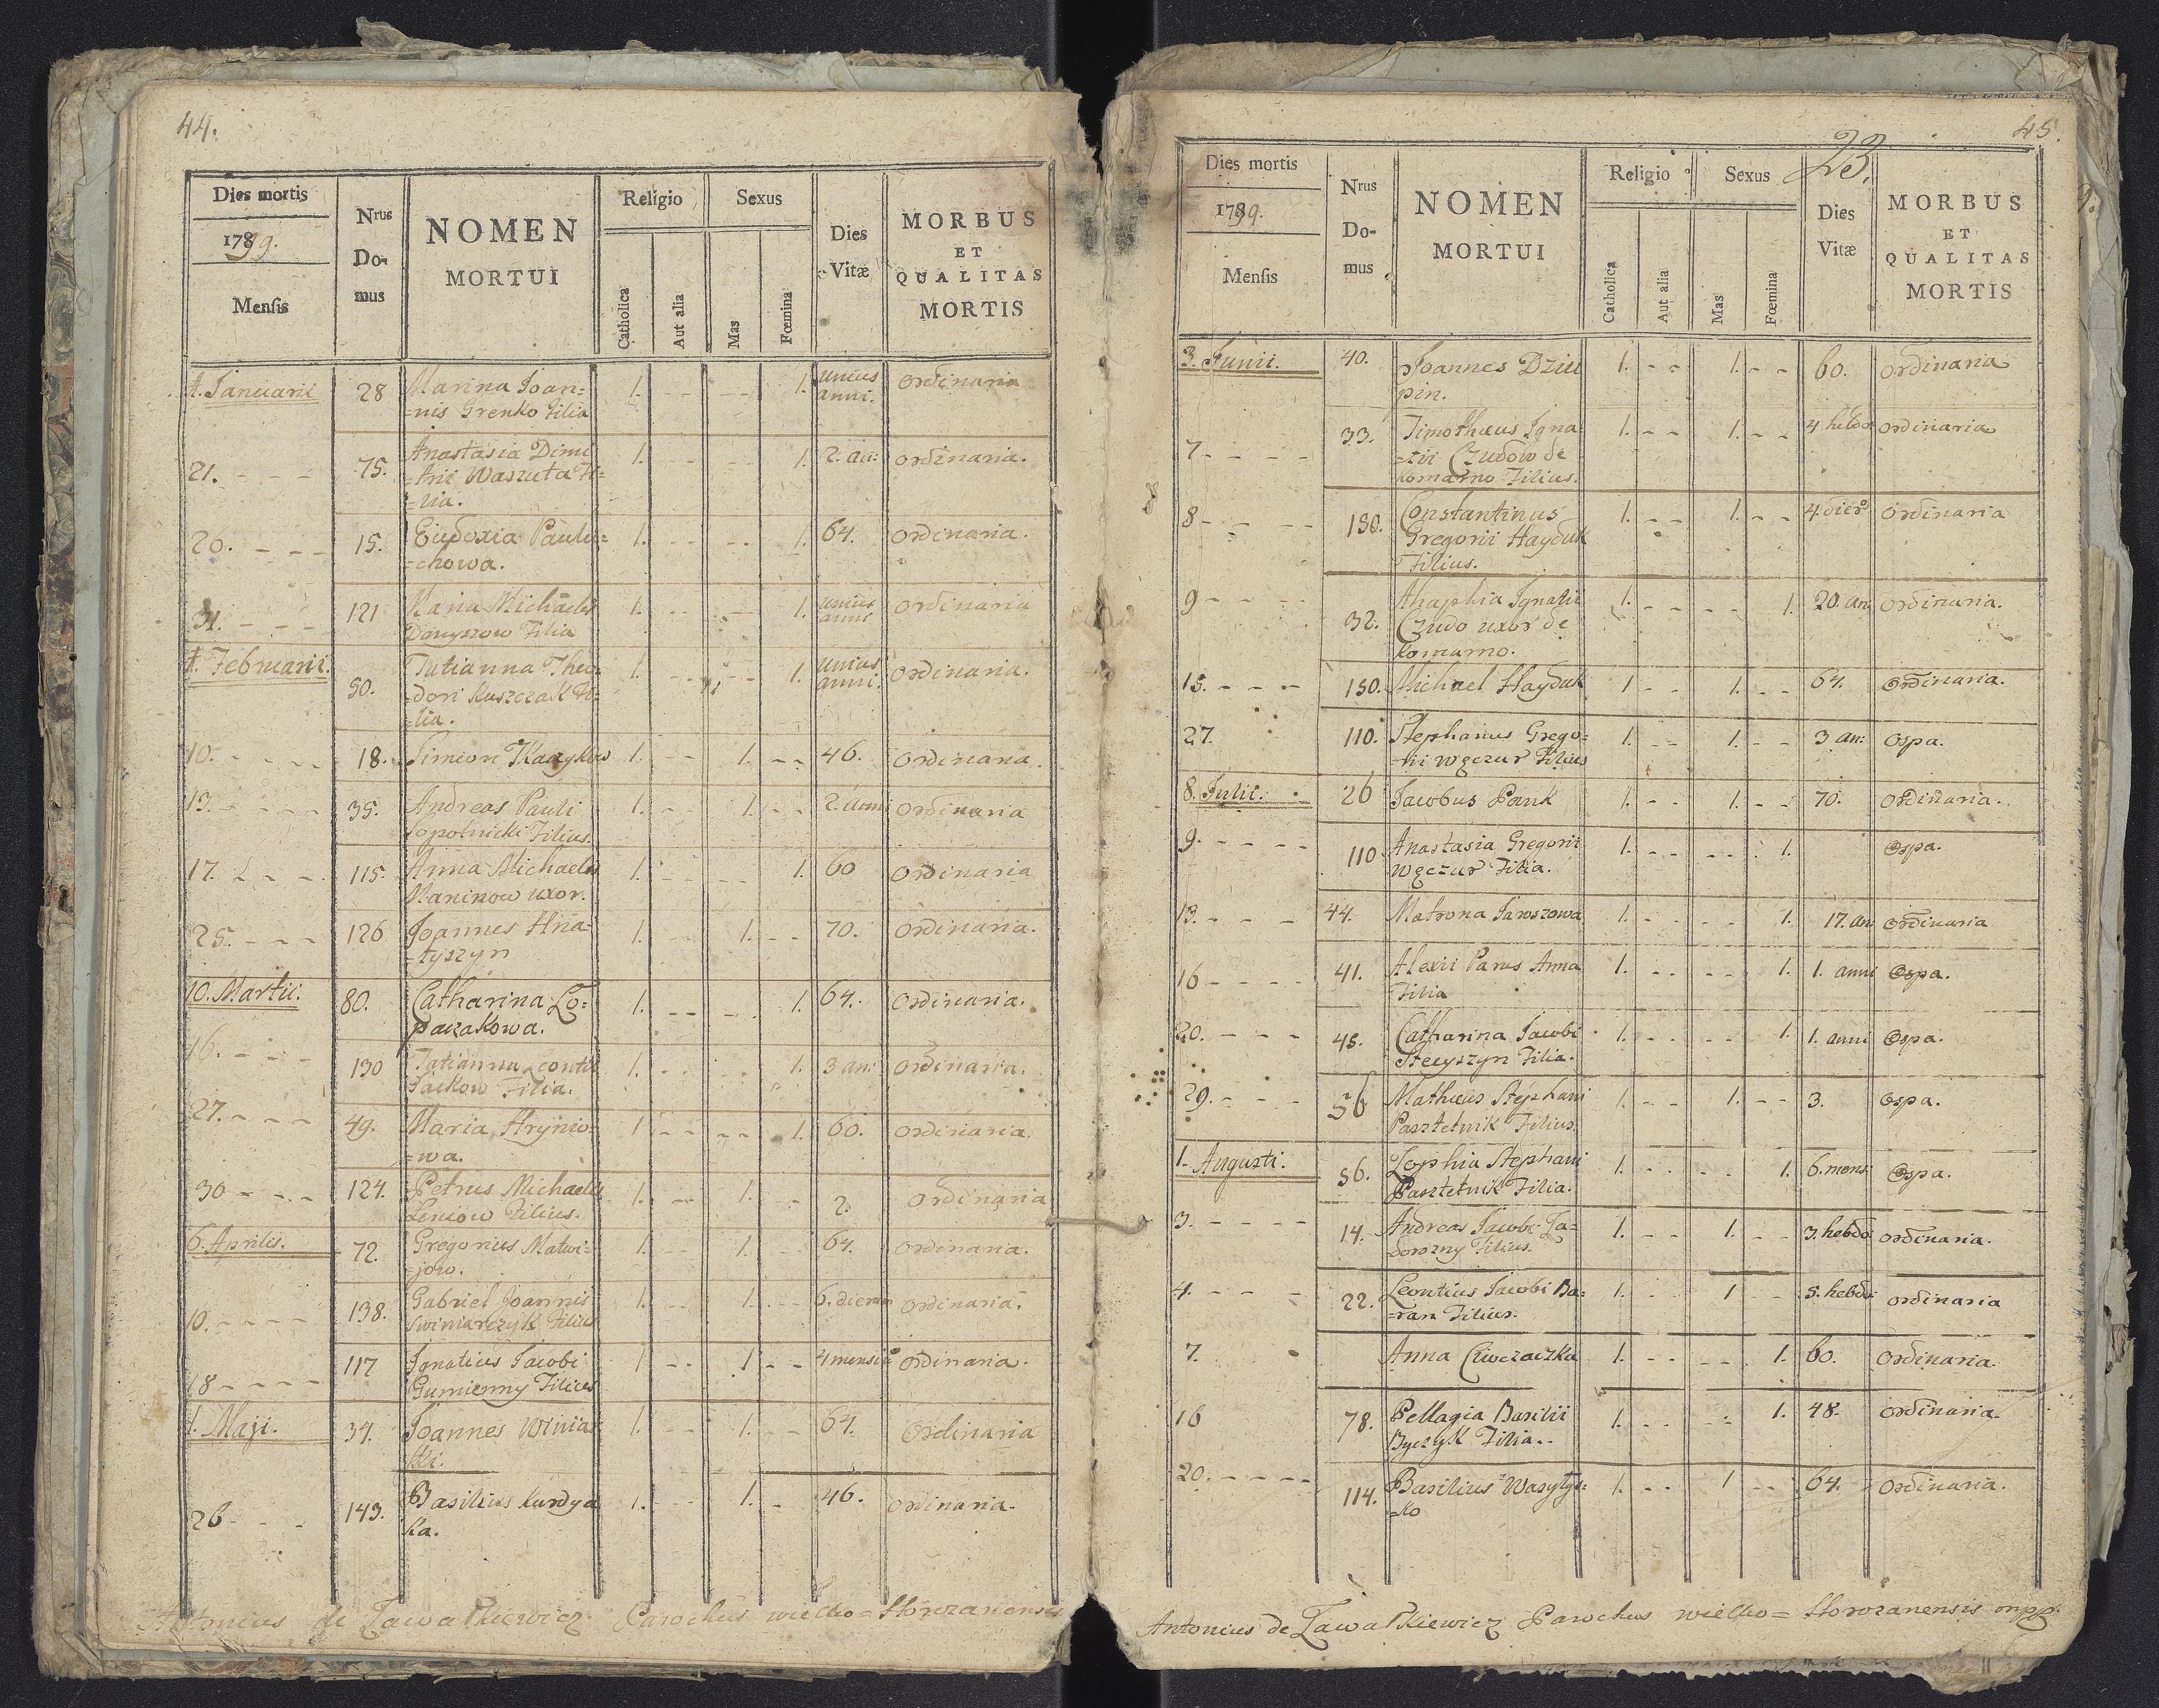 44.
Dies mortis
1799.
Mensis
Nrus
Do-
mus
NOMEN
MORTUI
Religio
Catholica
Aut alia
Sexus
Mas
Fœmina
Dies
Vitæ
MORBUS
ET
QUALITAS
MORTIS
1. Januarii 28 Marina Joan= 1. - - - - 1. unius ordinaria
=nis Grenko Filia anni.
21. - - - 75. Anastasia Dimi 1. - - - - 1. 2. an: ordinaria.
=trii Waszuta Fi=
=lia.
20. - - - 15. Eudoxia Paulu= 1. - - - - 1. 64. ordinaria.
=chowa.
31. - - - 121 Maria Michaelis 1. - - - - 1. unius ordinaria
Danyszow Filia anni
1. Februarii. 50. Tatianna Theo= 1. - - - - 1. unius ordinaria.
=dori Kuszczak Fi= anni.
=lia.
10. - - - - 18. Simion Tkaczykow 1. - - 1. - - 46. ordinaria.
13. - - - - 35. Andreas Pauli 1. - - 1. - - 2. anni ordinaria
Sopotnicki Filius.
17. - - - 115. Anna Michaelis 1. - - - - 1. 60 ordinaria
Maninow uxor.
25. - - - 126 Joannes Hna= 1. - - 1. - - 70. ordinaria.
=tyszyn
10. Martii. 80. Catharina Lo= 1. - - - - 1. 64. ordinaria.
paczakowa.
16. - - - 130 Tatianna Leontii 1. - - - - 1. 3 an: ordinaria.
Packow Filia.
27. - - - 49. Maria Hrynio= 1 - - - - 1. 60. ordinaria.
=wa.
30 - - - 124. Petrus Michaelis 1. - - 1. - - 2. ordinaria
Leniow Filius.
6. Aprilis. 72. Gregorius Matwi= 1. - - 1. - - 64. ordinaria.
=jow.
10. - - - - 138. Gabriel Joannis 1. - - 1. - - 6. dierum ordinaria.
Swiniarczyk Filius
18 - - - - 117 Ignatius Jacobi 1 - - 1 - - 4 mensiū ordinaria.
Gumienny Filius
1. Maji. 34. Joannes Winiar 1. - - 1. - - 64. Ordinaria
ski.
26 - - - 143. Basilius Kurdyd 1. - - 1. - 46. ordinaria.
ka.
Antonius de Zawałkiewicz Parochus wielko=Horozanensis
45.
23.
Dies mortis
1799.
Mensis
Nrus
Do-
mus
NOMEN
MORTUI
Religio
Catholica
Aut alia
Sexus
Mas
Fœmina
Dies
Vitæ
MORBUS
ET
QUALITAS
MORTIS
3. Junii. 40. Joannes Dziu 1. - - 1. - - 60. ordinaria
pin.
7 - - - - 33. Timotheus Igna= 1. - - 1. - - 4 hebdo ordinaria
=tii Czudow de
Komarno Filius.
8 - - - - 150. Constantinus 1. - - 1. - - 4. dier ordinaria
Gregorii Hayduk
Filius.
9 - - - - 32. Ahaphia Ignatii 1. - - - - 1. 20. an ordinaria.
Czudo uxor de
Komarno.
15. - - - 150. Michael Hayduk 1 - - 1. - - 64. ordinaria.
27. 110. Stephanus Grego= 1. - - 1. - - 3 an: ospa.
=rii Węczur Filius
8. Julii. 26 Jacobus Pank 1. - - 1. - - 70. ordinaria.
9. - - - - 110 Anastasia Gregorii 1. - - - - 1. ospa.
Węczur Filia.
13. - - - 44. Matrona Jaroszowa 1. - - - - 1. 17. an: ordinaria
16 - - - - 41. Alexii Parus Anna 1. - - - - 1. 1. anni ospa.
Filia
20. - - - 45. Catharina Jacobi 1. - - - - 1. 1. anni ospa.
Stecyszyn Filia.
29. - - - 56 Matheus Stephani 1. - - 1. - - 3. ospa.
Pasztetnik Filius.
1. Augusti. 56. Zophia Stephani 1. - - - - 1. 6. mens: ospa.
Pasztetnik Filia.
3. - - - - 14. Andreas Jacobi Za= 1. - - 1. - - 3. hebdo: ordinaria.
=dorozny Filius.
4. - - - 22. Leontius Jacobi Ba= 1. - - 1 - - 5. hebdo: ordinaria
=ran Filius.
7. Anna 1. - - - - 1. 60. ordinaria.
16 78. Pellagia Basilii 1. - - - - 1. 48. ordinaria.
Byczyk Filia.
20. - - - - 114. Basilius Wasyłys= 1. - - 1 - - 64. ordinaria.
=ko
Antonius de Zawałkiewicz Parochus wielko=Horozanensis mpp.